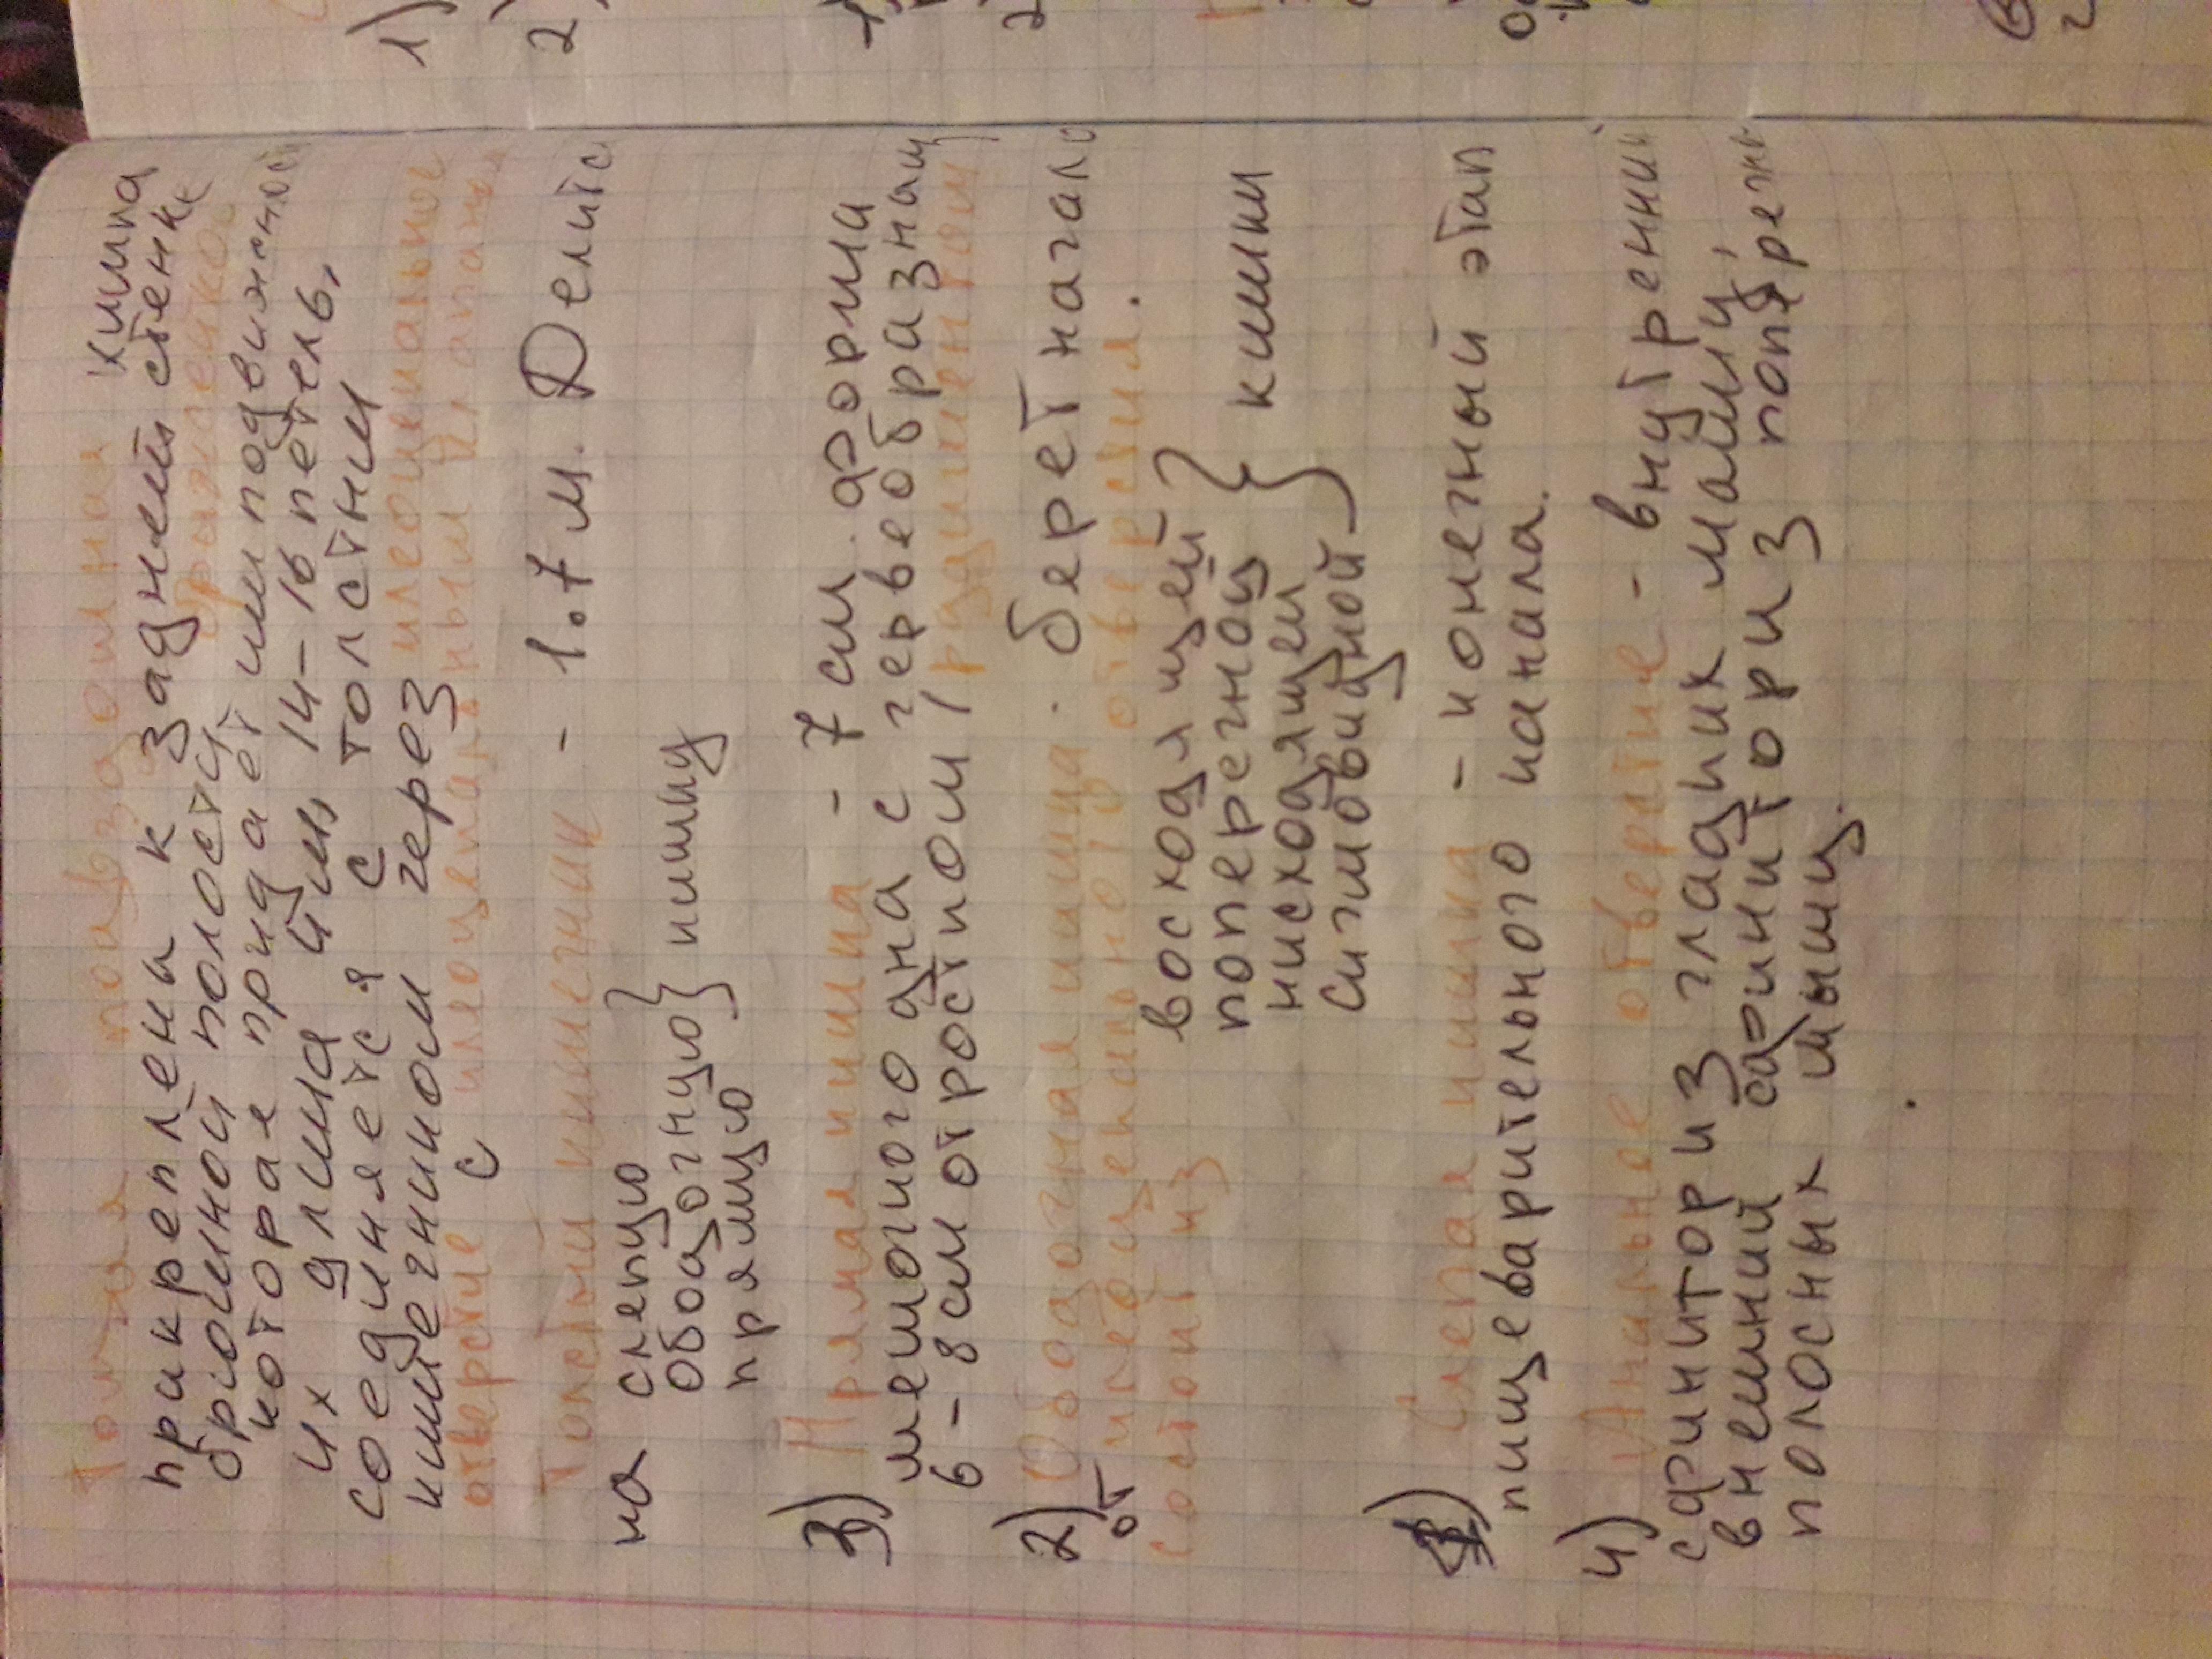 Тощая подвздошная кишка
прикреплена к задней стенке
брюшной полости брыжейкой
которая придает им подвижность
их длина 4 м 14-16 петель,
соединяется с толстым
кишечником через илеоцекальное
отверстие с илеоцекальным клапаном
Толстый кишечник - 1.7 м. Делится
на слепую
ободочную } кишку
прямую
3) Прямая кишка - 7 см. форма
мешочного дна с червеобразным
6-8 см отростком
2) Ободочная кишка. берет начало
от илеоцекального отверстия.
состоит из
восходящей
поперечной
нисходящей } кишки
сигмовидной
1) Слепая кишка - конечный этап
пищеварительного канала.
4) Анальное отверстие - внутренний
сфинктор из гладких мышц,
внешний сфинктор из попереч
полосных мышц.
1)
2)